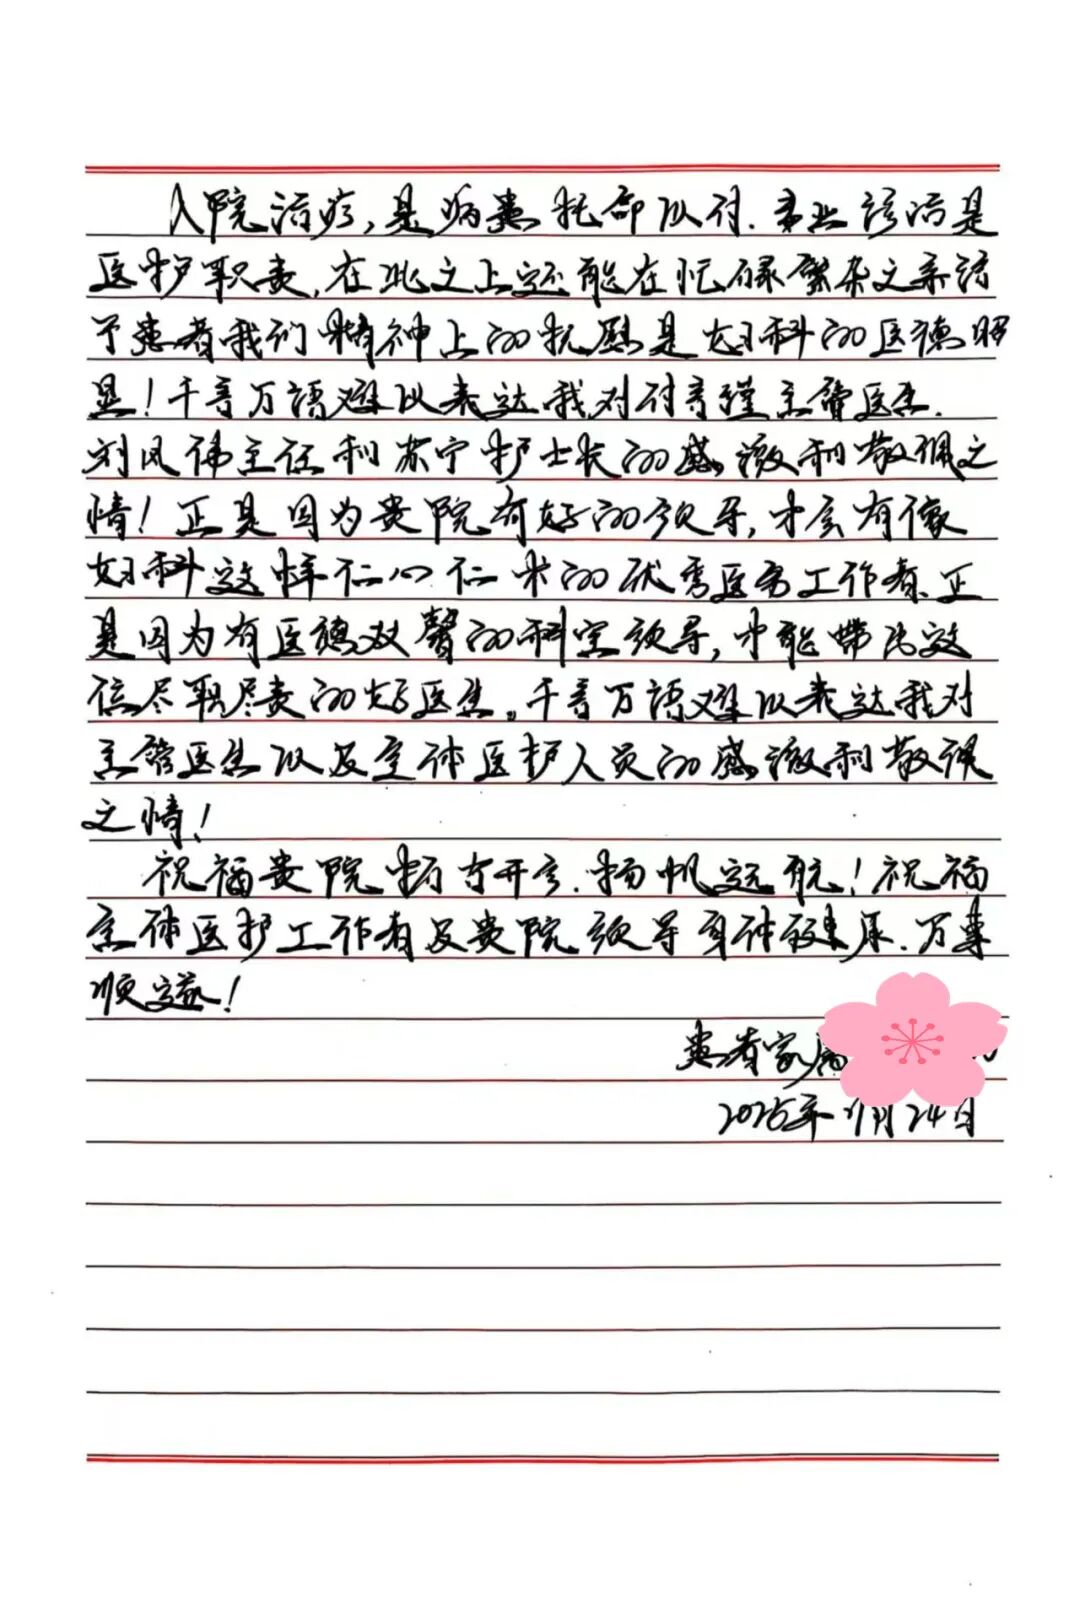 入院治疗，是病患托命以付.专业诊治是
医护职责，在此之上还能在忙碌繁杂之余给
予患者我们精神上的抚慰是妇科的医德昭
显！千言万语难以表达我对付言瑾主管医生.
刘风伟主任和苏宁护士长的感激和敬佩之
情！正是因为贵院有好的领导，才会有像
妇科这样仁心仁术的优秀医务工作者.正
是因为有医德双馨的科室领导，才能带出这
位尽职尽责的好医生。千言万语难以表达我对
主管医生以及全体医护人员的感激和敬佩
之情！
祝福贵院.扬帆远航！祝福
全体医护工作者及贵院领导身体健康.万事
顺遂！
患者家属
2025年11月24日